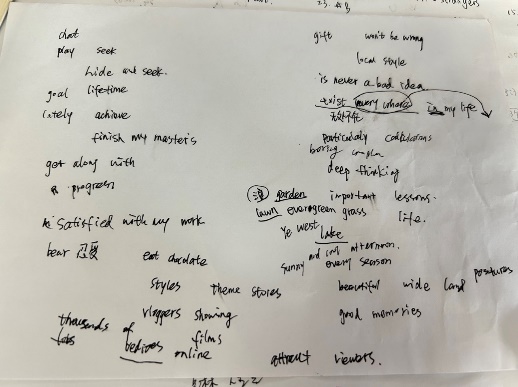 chat
play seek
hide and seek.
goal lifetime
lately achieve
finish my master's
get along with
progress
satisfied with my work
bear 忍受
eat chocolate
styles theme stores
vloggers showing
thousands of films
online
attract viewers.
gift won't be wrong
local style
is never a bad idea
exist every where in my life
particularly calculations
boring complex
deep thinking
garden important lessons.
lawn evergreen grass life.
west lake
sunny and cool afternoon.
every season
beautiful wide land
good memories